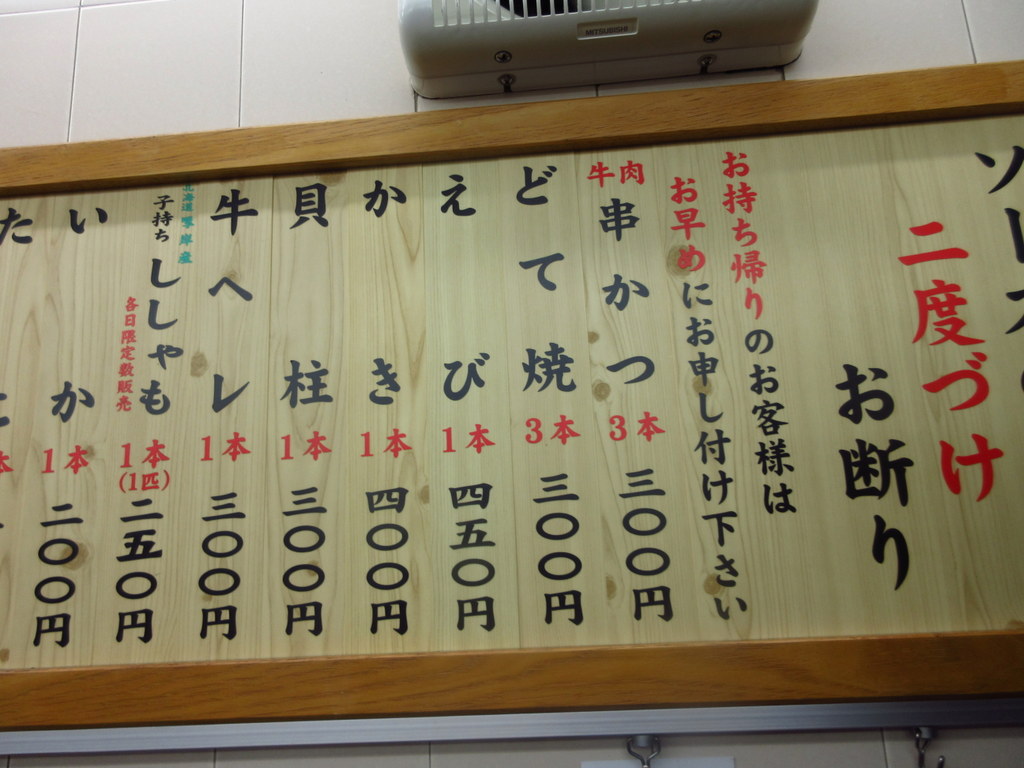 MITSUBISHI
二度づけ
お断り
お持ち帰りのお客様は
お早めにお申し付け下さい
牛肉
串かつ 3本 三〇〇円
どて焼 3本 三〇〇円
えび 1本 四五〇円
かき 1本 四〇〇円
貝柱 1本 三〇〇円
牛ヘレ 1本 三〇〇円
北海道
産
子持ち
ししゃも 1本 (1匹) 二五〇円
各日限定数販売
いか 1本 二〇〇円
た